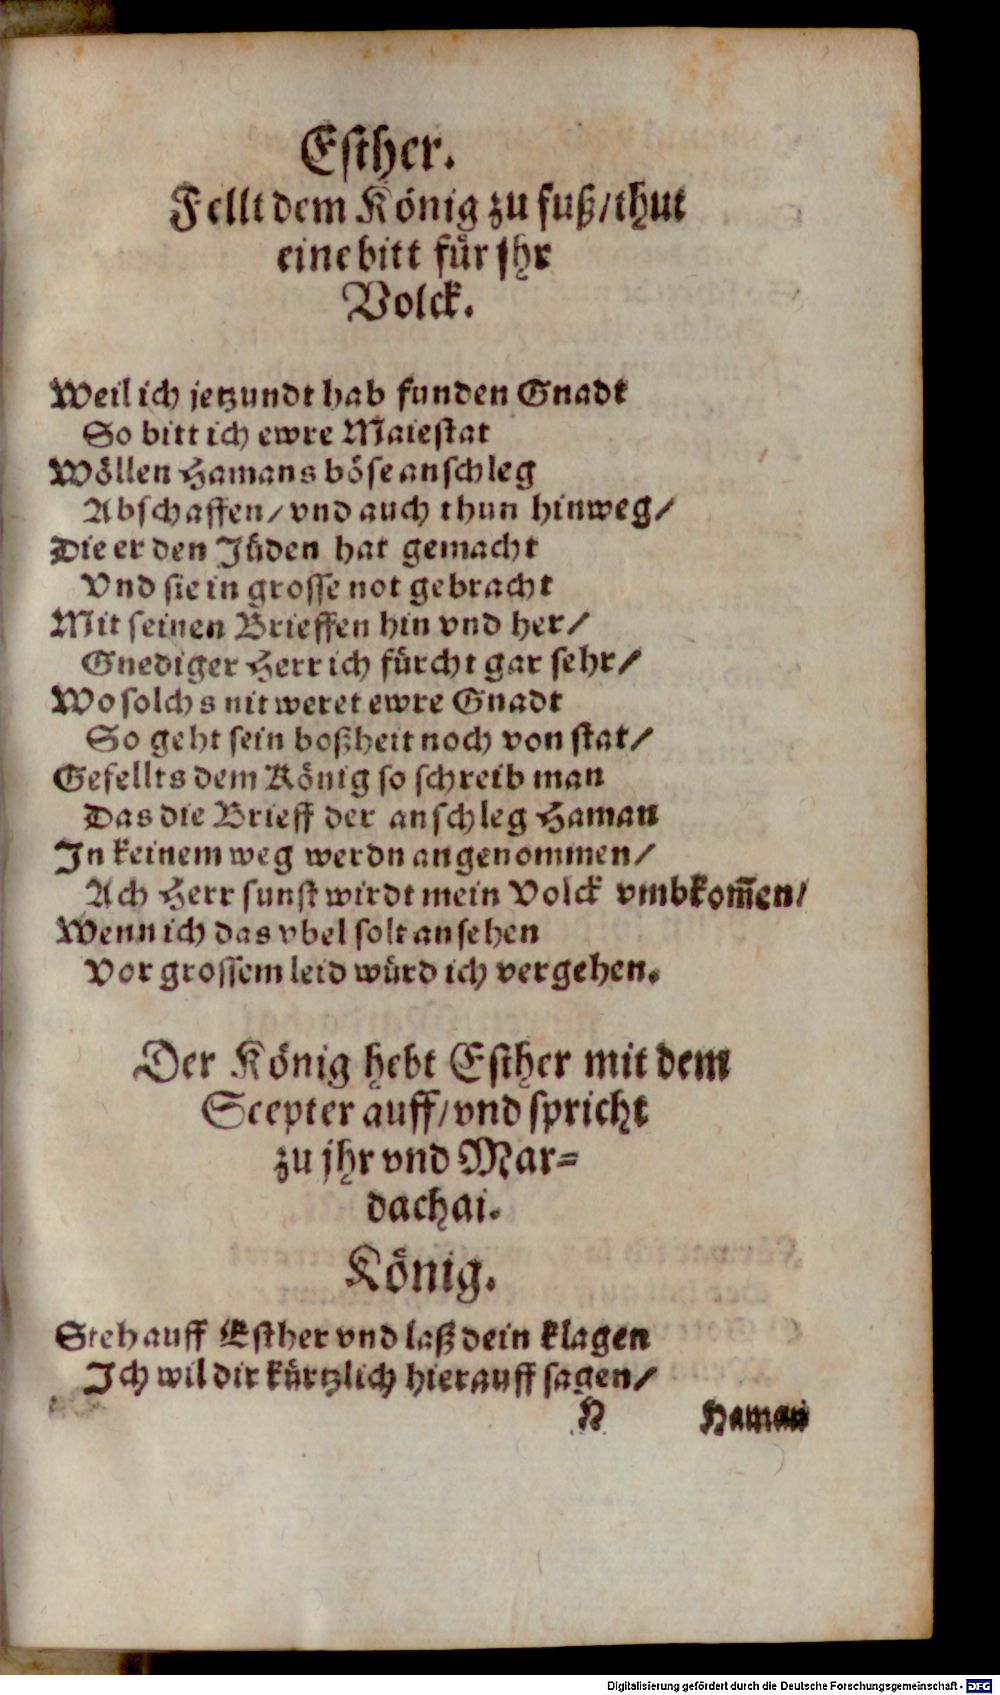 Esther.
Fellt dem König zu fuß/thut
eine bitt für jhr
Volck.
Weil ich jetzundt hab funden Gnadt
So bitt ich ewre Maiestat
Wöllen Hamans böse anschleg
Abschaffen/ vnd auch thun hinweg/
Die er den Jüden hat gemacht
Vnd sie in grosse not gebracht
Mit seinen Brieffen hin vnd her/
Gnediger Herr ich fürcht gar sehr/
Wo solchs nit weret ewre Gnadt
So geht sein boßheit noch von stat/
Gefellts dem König so schreib man
Das die Brieff der anschleg Haman
In keinem weg werdn angenommen/
Ach Herr sunst wirdt mein Volck vmbkom̄en/
Wenn ich das vbel solt ansehen
Vor grossem leid würd ich vergehen.
Der König hebt Esther mit dem
Scepter auff/vnd spricht
zu jhr vnd Mar=
dachai.
König.
Steh auff Esther vnd laß dein klagen
Ich wil dir kürtzlich hierauff sagen/
H Haman
Digitalisierung gefördert durch die Deutsche Forschungsgemeinschaft - DFG